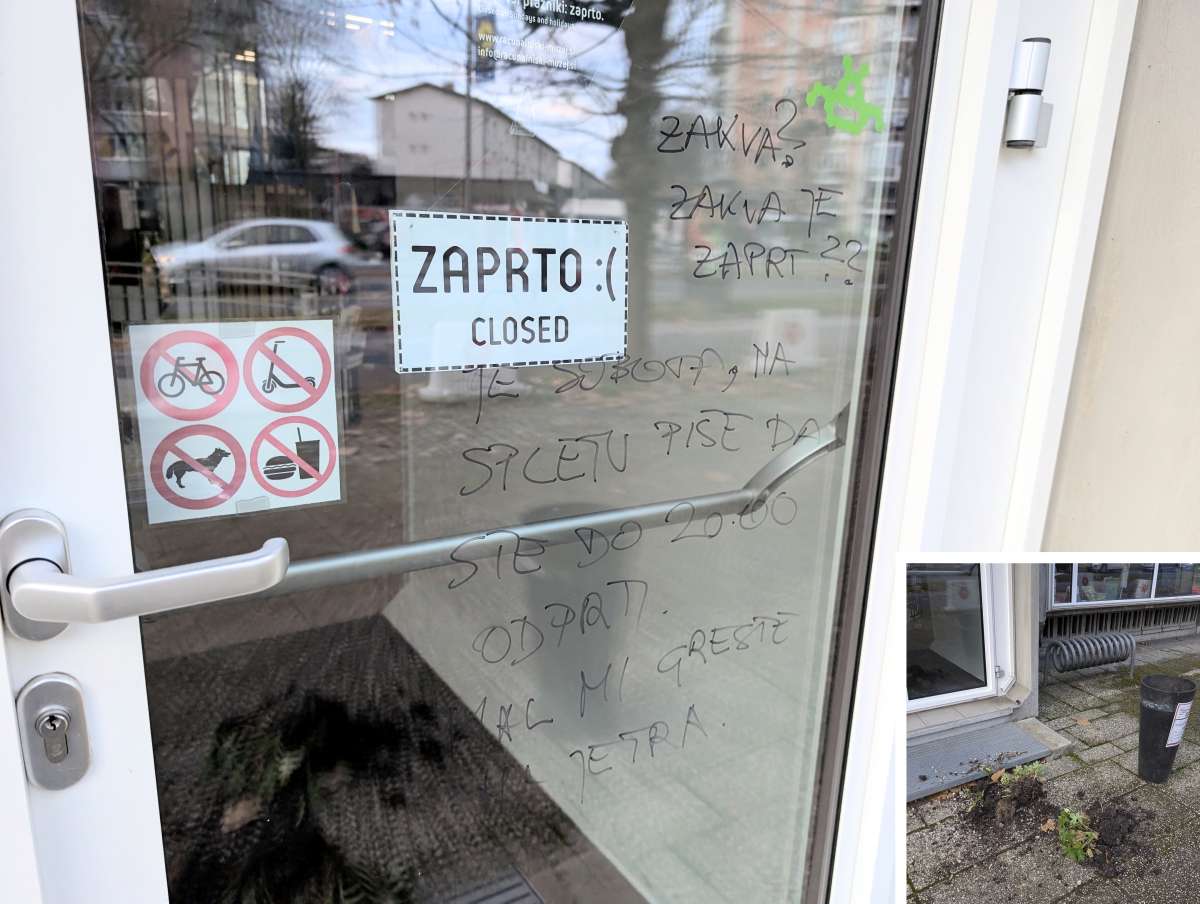 prazniki: zaprto.
www.racunalniski-muzej.si
info@racunalniski-muzej.si
ZAKVA?
ZAKVA JE
ZAPRT??
ZAPRTO :(
CLOSED
JE SOBOTA, NA
SPLETU PIŠE DA
STE DO 20.00
ODPRTI.
MAL MI GRESTE
NA JETRA.